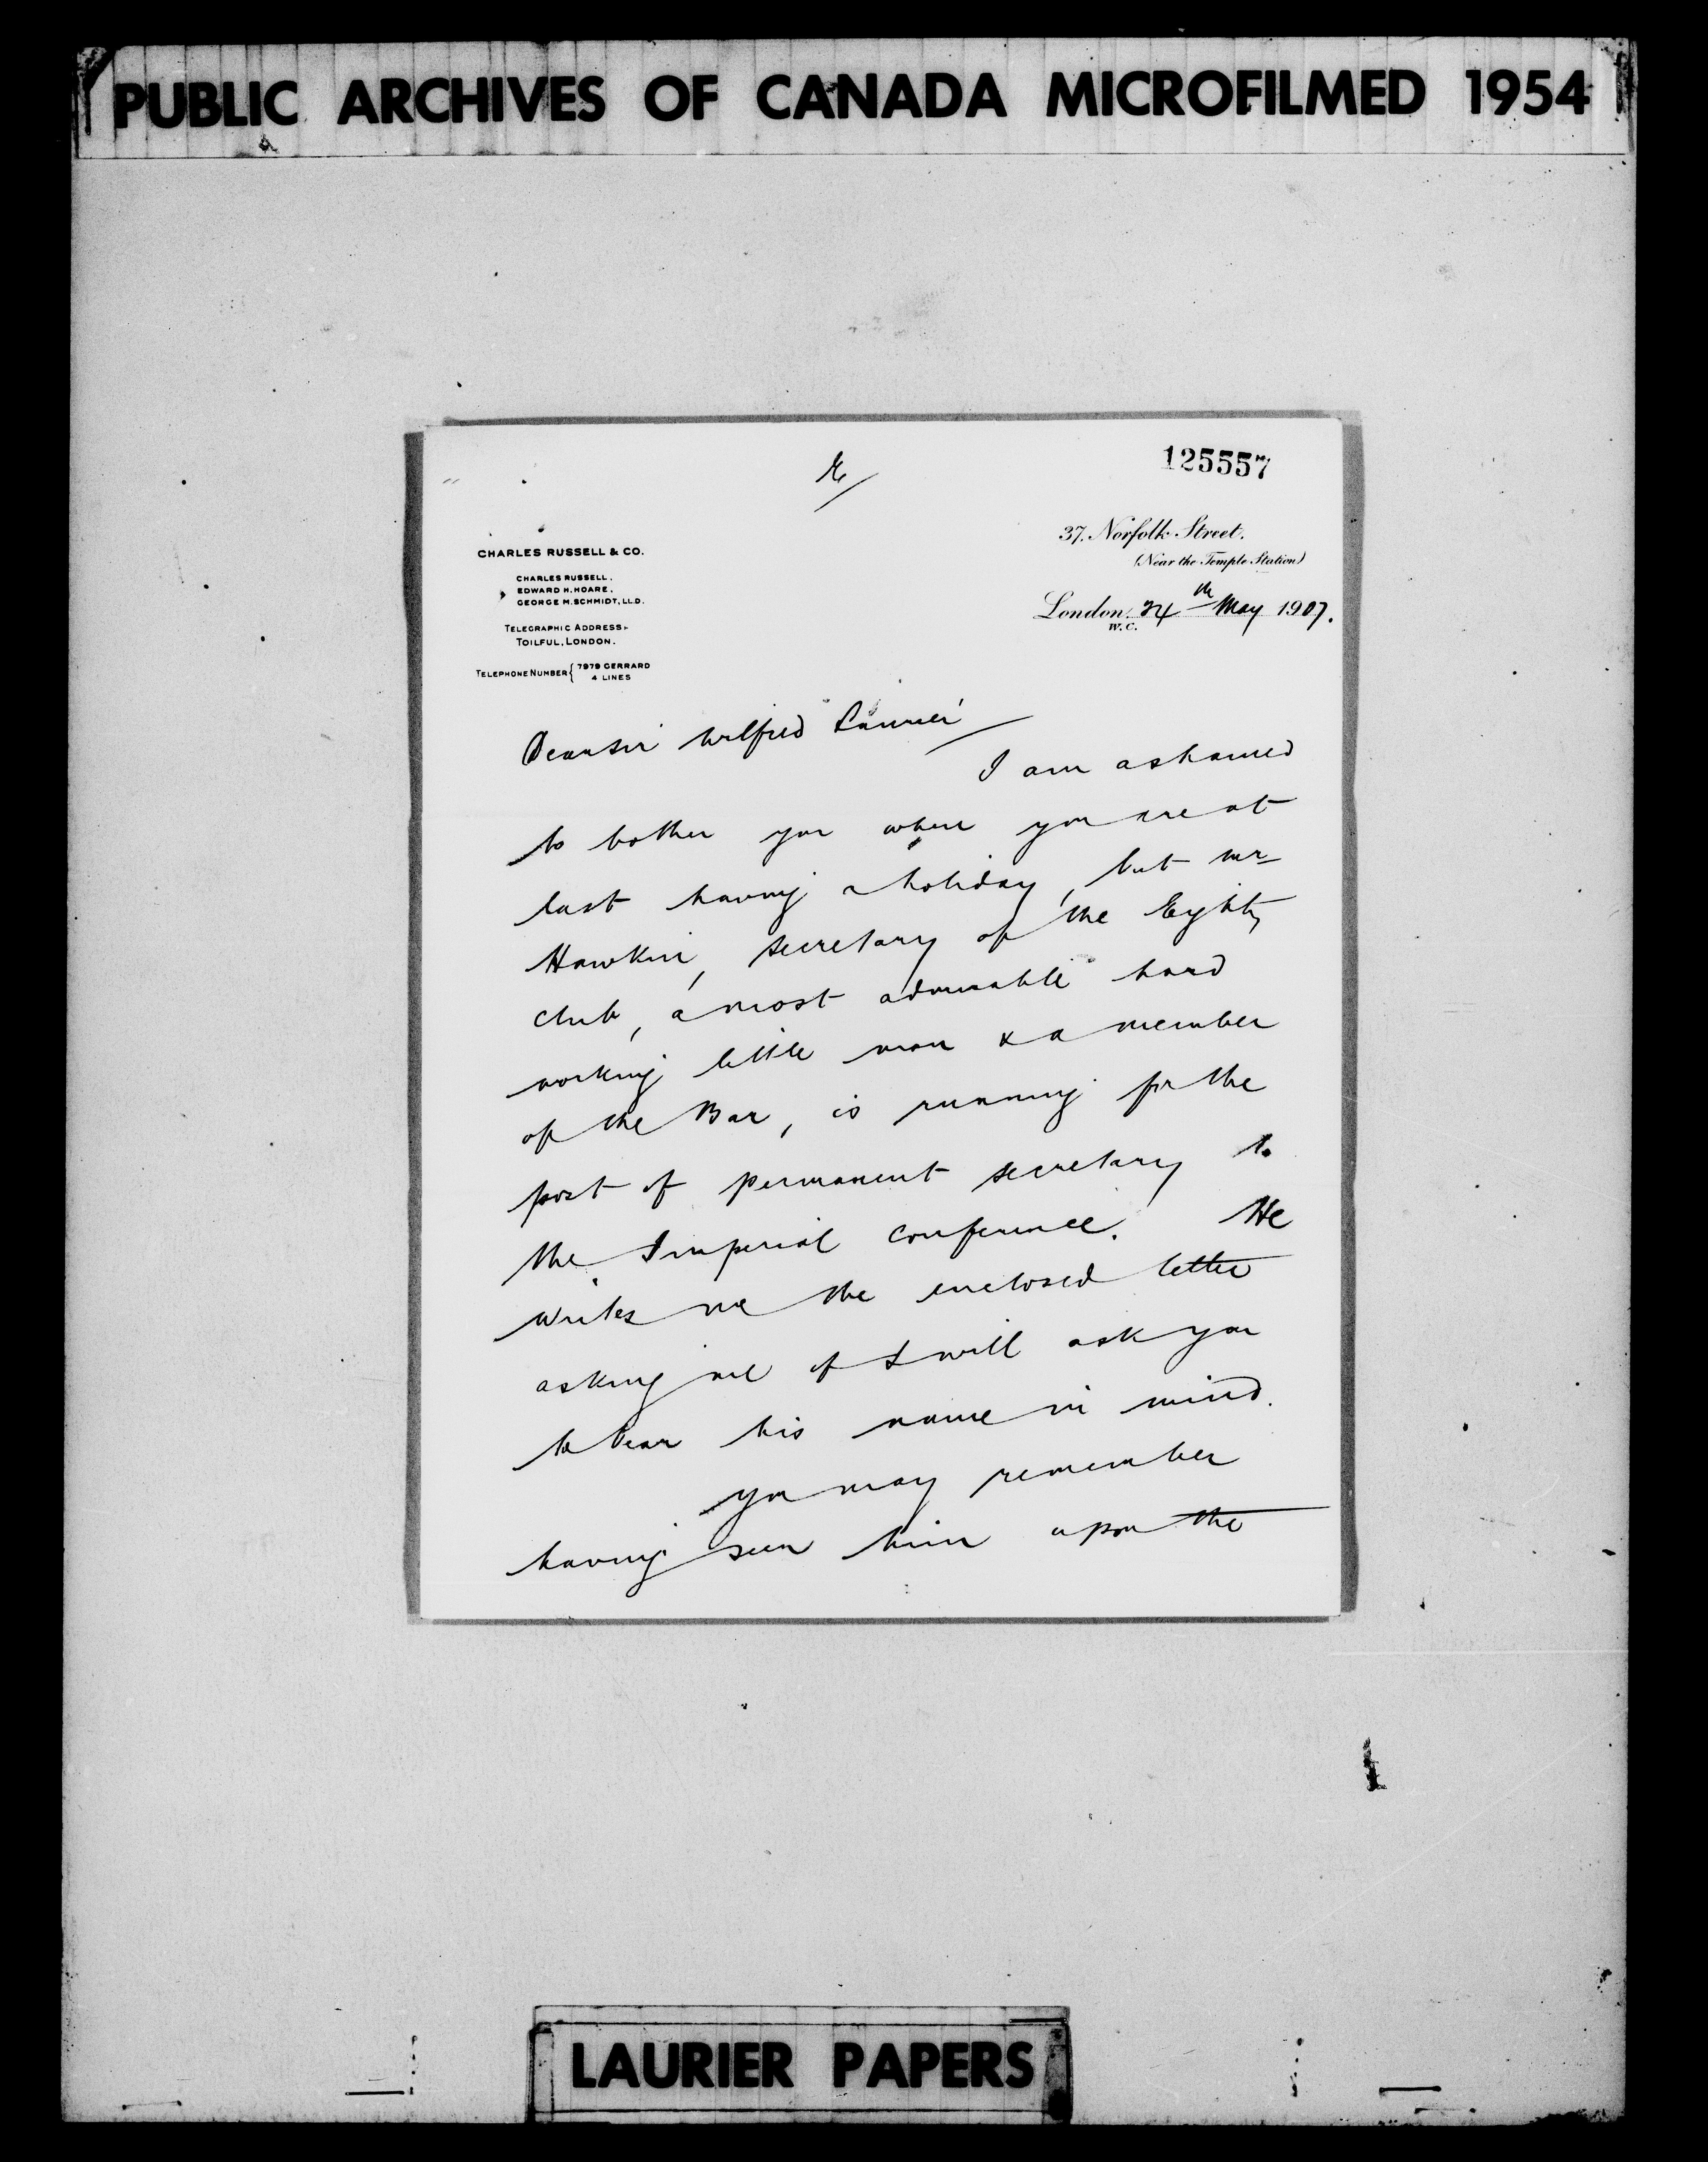 PUBLIC ARCHIVES OF CANADA MICROFILMED 1954
125557
CHARLES RUSSELL & CO.
CHARLES RUSSELL.
EDWARD H. HOARE.
GEORGE M. SCHMIDT, LL.D.
TELEGRAPHIC ADDRESS-
TOILFUL, LONDON.
TELEPHONE NUMBER { 7979 GERRARD
4 LINES
37. Norfolk Street.
(Near the Temple Station)
London. 24th May 1907.
W.C.
Dear Sir Wilfred Laurier
I am ashamed
to bother you when you are at
last having a holiday, but Mr
Hawkin, secretary of the Eighty
Club, a most admirable hard
working little man & a member
of the Bar, is running for the
post of permanent secretary to
the Imperial Conference. He
writes me the enclosed letter
asking me if I will ask you
to bear his name in mind.
You may remember
having seen him upon the
LAURIER PAPERS